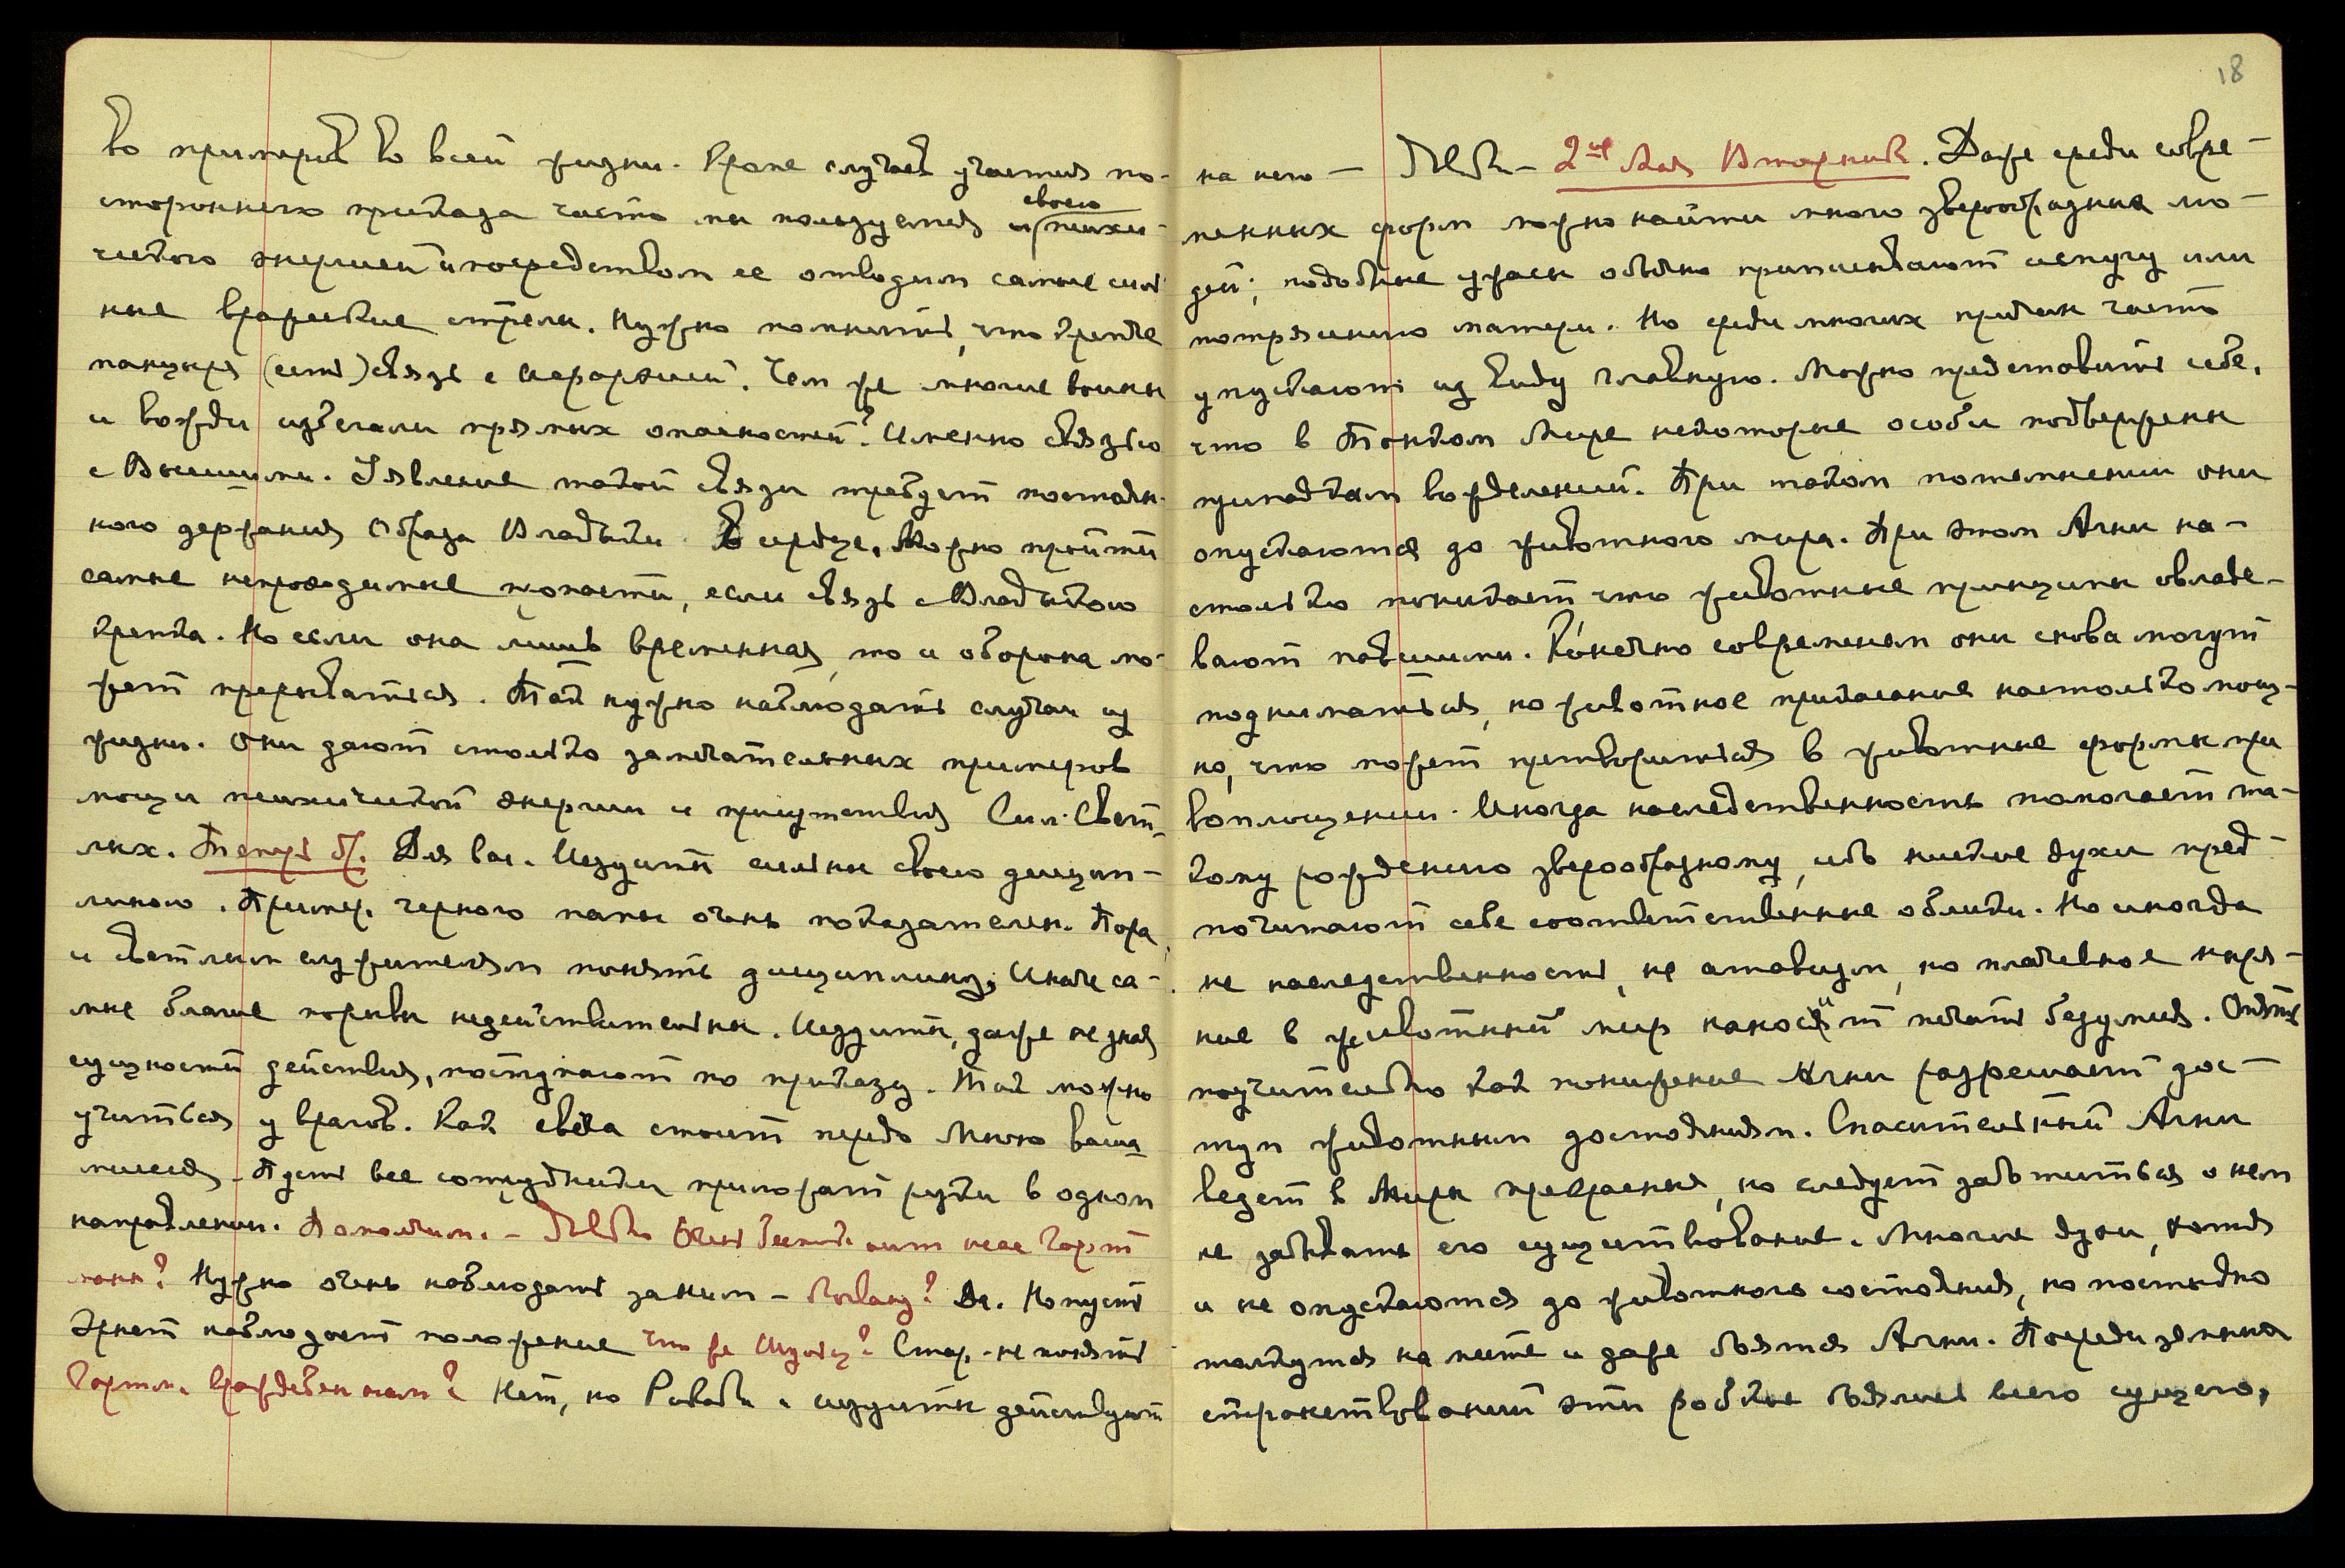 во примеров во всей жизни. Кроме случаев участия по-
стороннего приказа часто мы пользуемся и своею психи-
ческою энергией и посредством ее отводим самые силь
ные вражеские стрелы. Нужно помнить, что крепче
панцыря (есть) связь с Иерархией. Чем же многие воины
и вожди избегали прямых опасностей? Именно связью
с Высшими. Явление такой связи требует постоян-
ного держания Образа Владыки в сердце. Можно пройти
самые непроходимые пропасти, если связь с Владыкою
крепка. Но если она лишь временная, то и оборона мо-
жет прерываться. Так нужно наблюдать случаи из
жизни. Они дают столько замечательных примеров
мощи психической энергии и присутствия Сил Свет-
лых. Теперь б/. Для вас. Иезуиты сильны своею дисцип-
линою. Пример. черного папы очень показателен. Пора
и светлым служителям понять дисциплину. Иначе са-
мые благие порывы недействительны. Иезуиты, даже не зная
сущности действия, поступают по приказу. Так можно
учиться у врагов. Как свеча стоит передо Мною ваша
миссия. Пусть все сотрудники приложат руки в одном
направлении. Помолчим. –
Нужно очень наблюдать за ним – Да. Но пусть
наблюдает положение что же Стар. не понять
враждебен нам? Нет, но иезуиты действуют
18
на него – 2-ое Мая Вторник. Даже среди совре-
менных форм можно найти много зверообразных лю-
дей; подобные ужасы обычно приписывают испугу или
потрясению матери. Но среди многих причин часто
упускают из виду главную. Можно представить себе,
что в Тонком Мире некоторые особи подвержены
припадкам вожделений. При таком потемнении они
опускаются до животного мира. При этом Агни на-
столько поникает что животные принципы овладе-
вают павшими. Конечно со временем они снова могут
подниматься, но животное прикасание настолько мощ-
но, что может претвориться в животные формы при
воплощении. Иногда наследственность помогает та-
кому рождению зверообразному, ибо низкие духи пред-
почитают себе соответственные облики. Но иногда
не наследственность, не атавизм, но плачевное ныря-
ние в животный мир наносит печать безумия. Опять
поучительно как понижение Агни разрешает дос-
туп животным достояниям. Спасительный Агни
ведет в Миры прекрасные, но следует заботиться о нем
не забывать его существование. Многие духи, хотя
и не опускаются до животного состояния, но постыдно
толкутся на месте и даже боятся Агни. Посреди земных
странствований эти робкие боялись всего сущего,